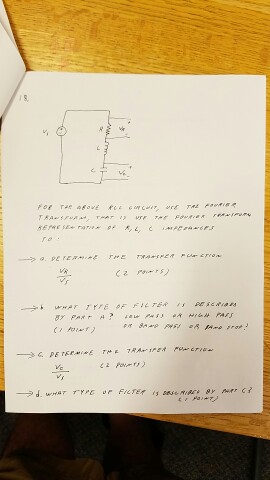 Vs
R
VR
L
C
Vc
FOR THE ABOVE RLC CIRCUIT, USE THE FOURIER
TRANSFORM, THAT IS USE THE FOURIER TRANSFORM
REPRESENTATION OF R, L, C IMPEDANCES
TO:
→ a. DETERMINE THE TRANSFER FUNCTION
VR
VS (2 POINTS)
→ b WHAT TYPE OF FILTER IS DESCRIBED
BY PART A? LOW PASS OR HIGH PASS
(1 POINT) OR BAND PASS OR BAND STOP?
→ C. DETERMINE THE TRANSFER FUNCTION
VC (2 POINTS)
VS
→ d. WHAT TYPE OF FILTER IS DESCRIBED BY PART C?
(1 POINT)